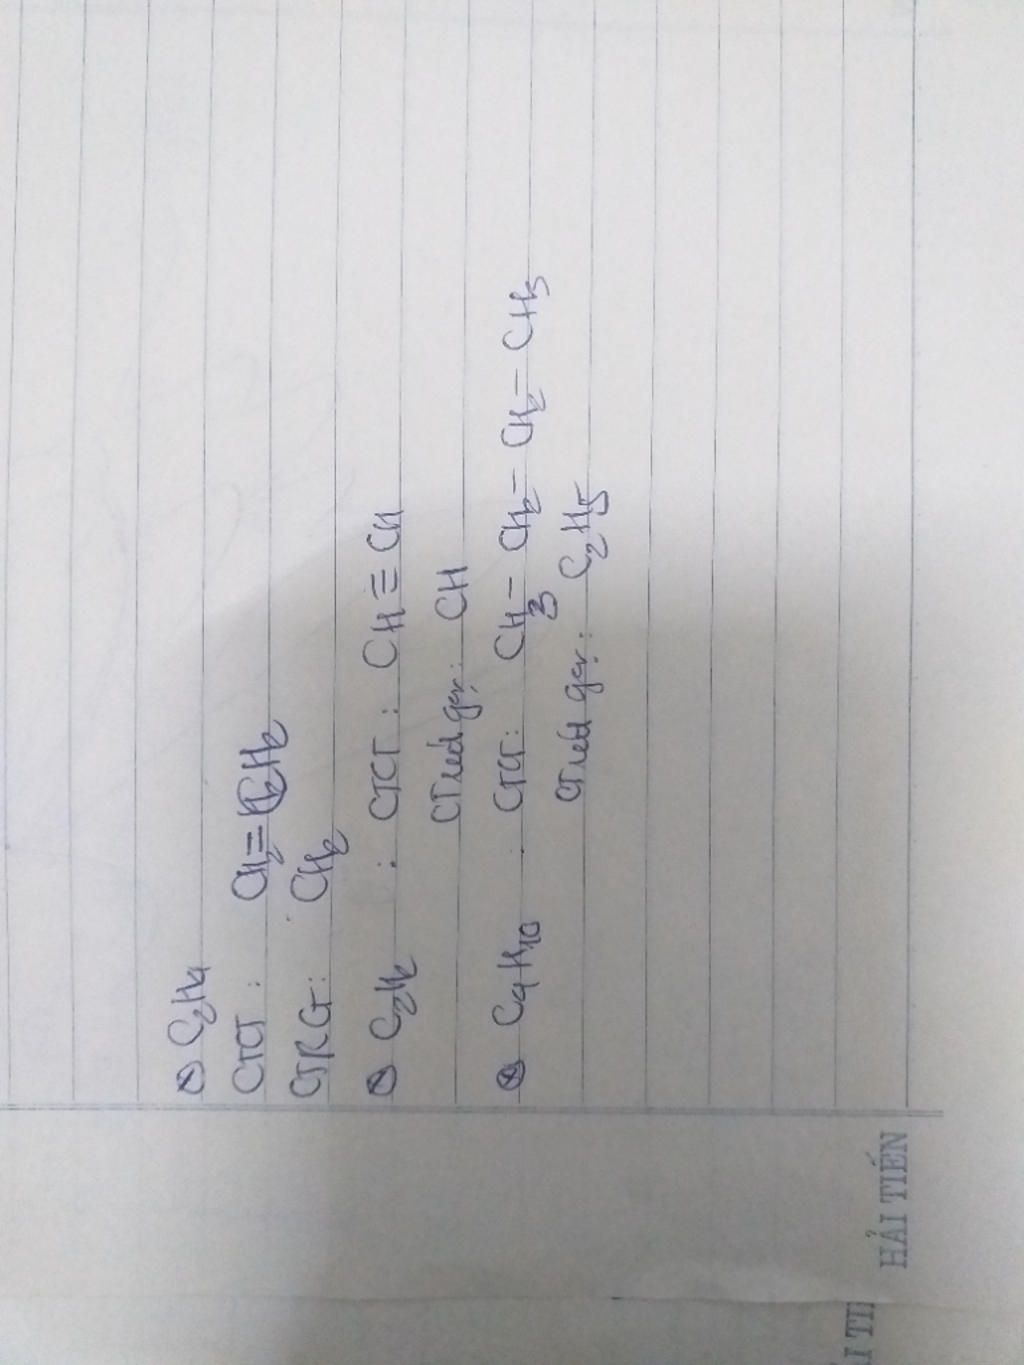 C₂H₄
CTCT : CH₂=CH₂
CTRG : CH₂
C₂H₂ : CTCT : CH≡CH
CT rút gọn : CH
C₄H₁₀ : CTCT : CH₃-CH₂-CH₂-CH₃
CT rút gọn : C₂H₅
HẢI TIẾN